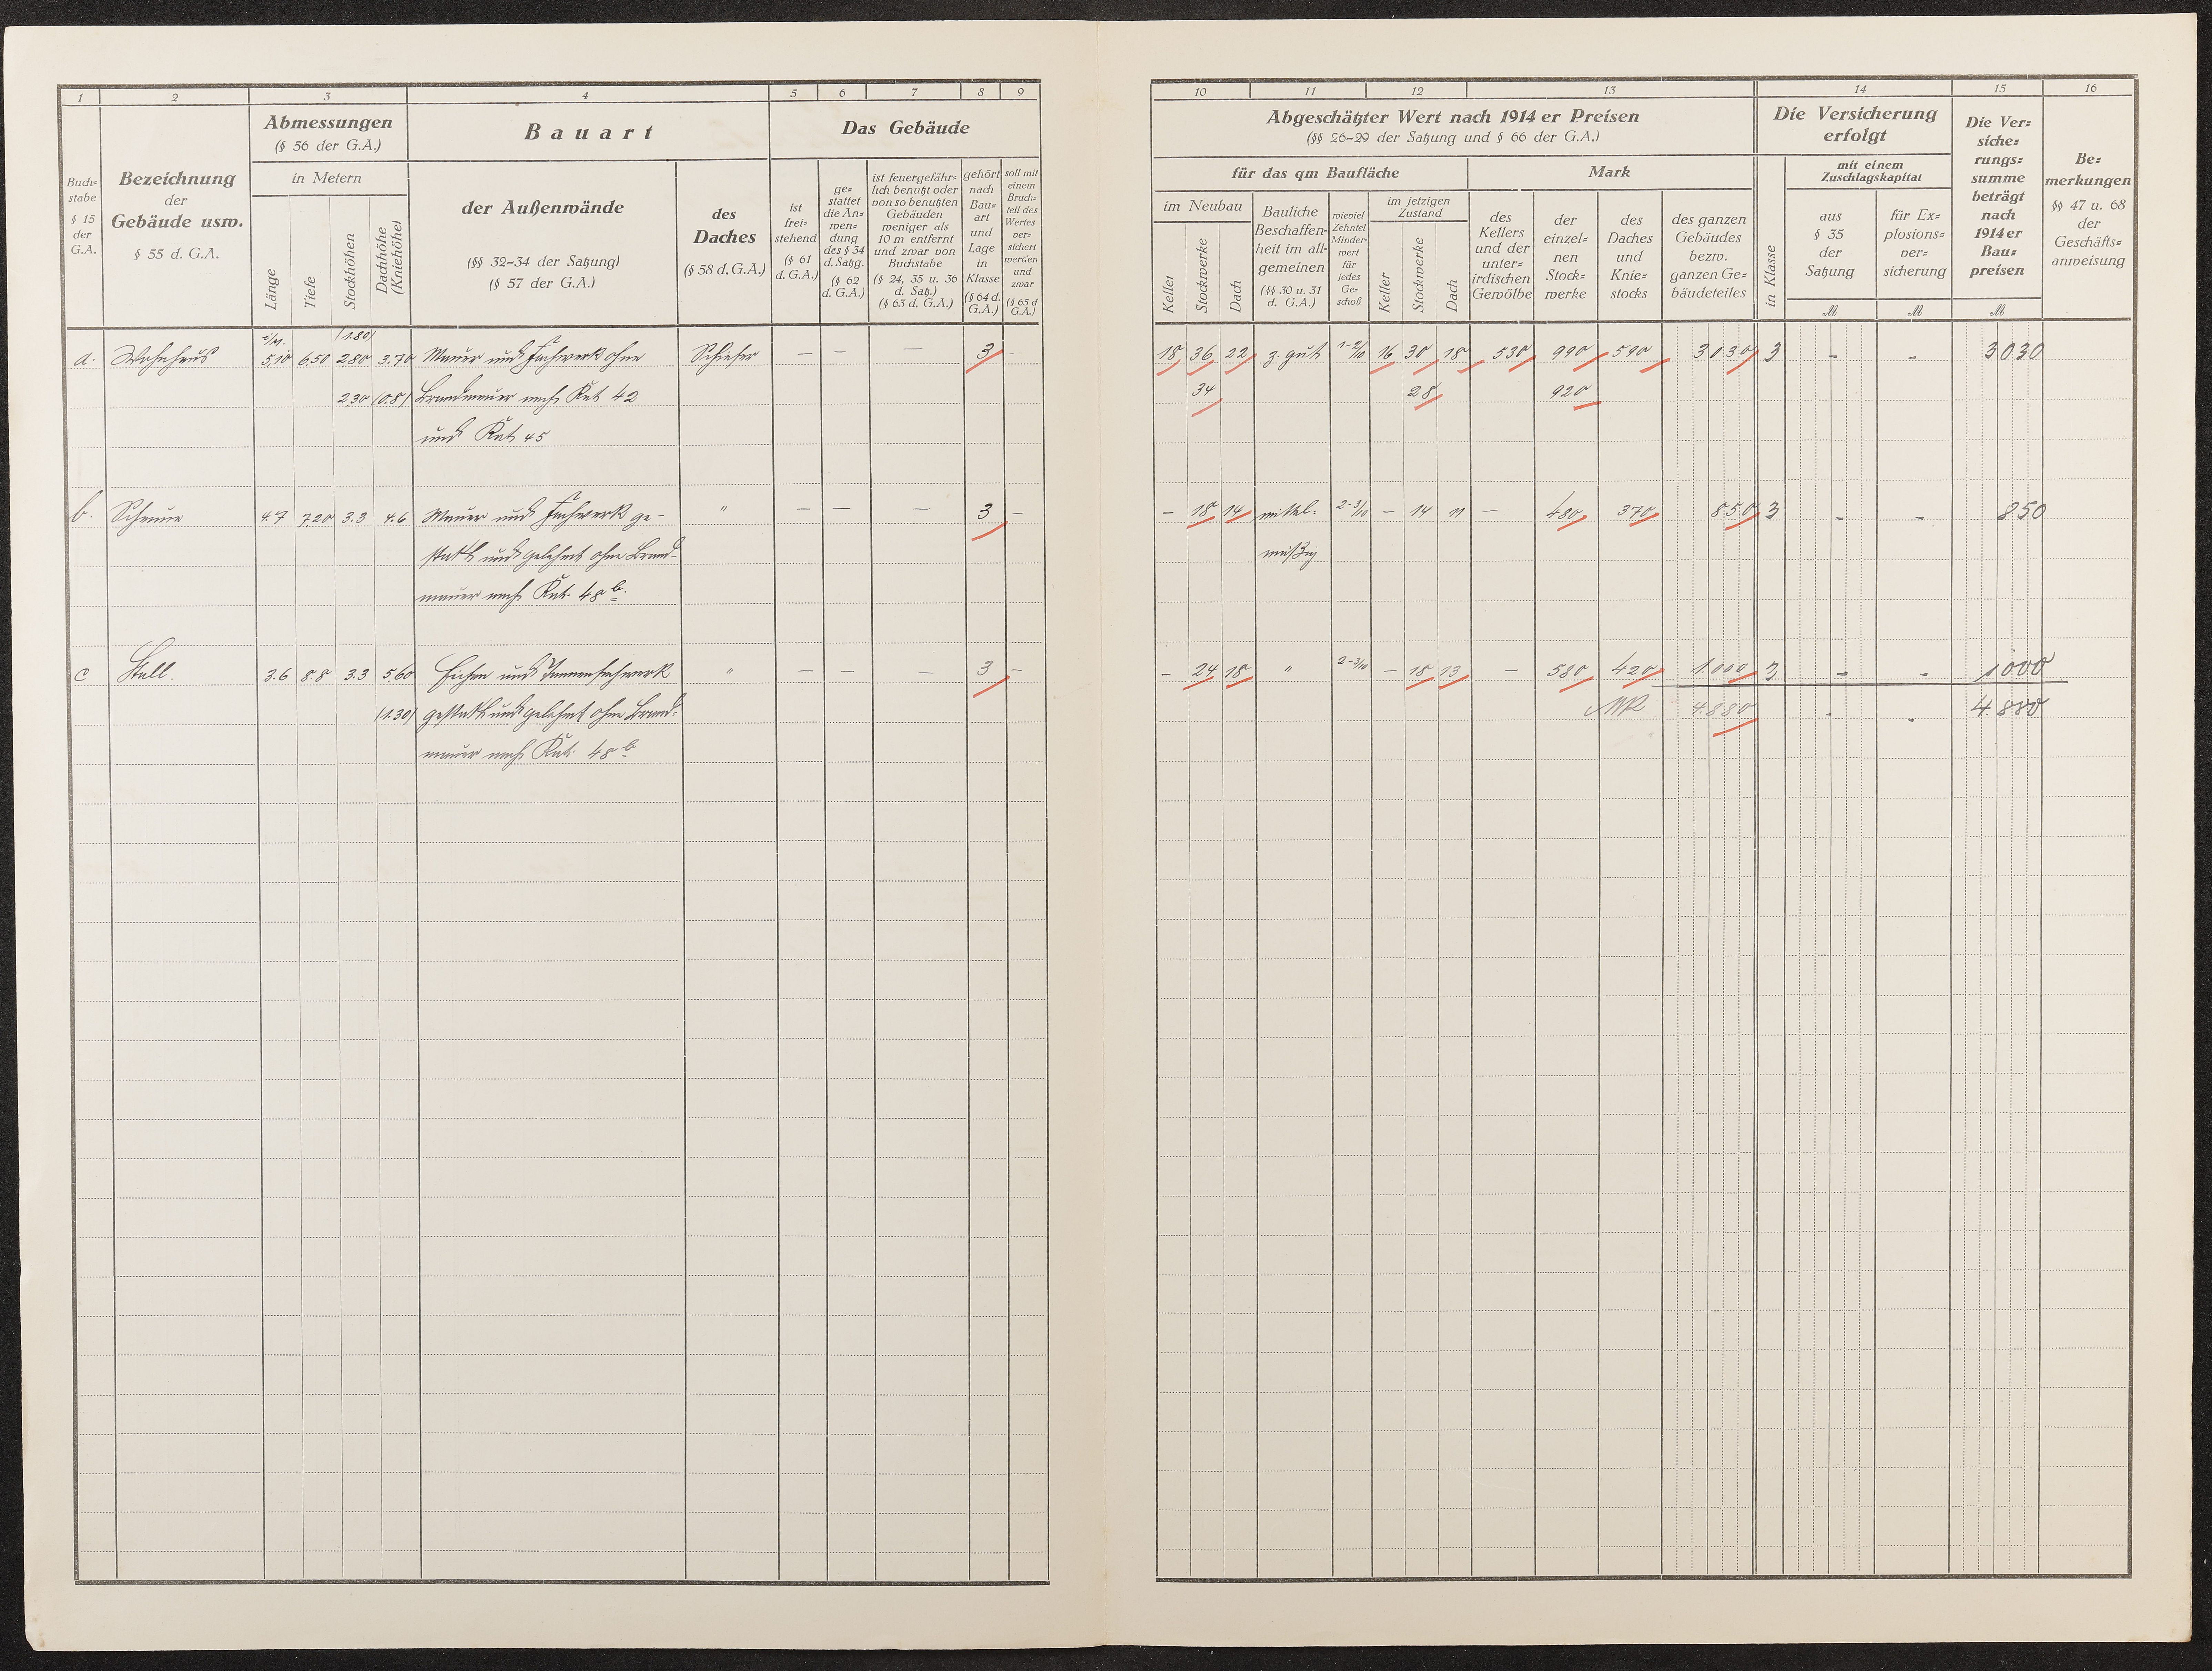 1 2 3 4 5 6 7 8 9
Buch=
stabe
§ 15
der
G.A.
Bezeichnung
der
Gebäude usw.
§ 55 d. G.A.
Abmessungen
(§ 56 der G.A.)
in Metern
Länge
Tiefe
Stockhöhen
Dachhöhe
(Kniehöhe)
Bauart
der Außenwände
(§§ 32–34 der Satzung)
(§ 57 der G.A.)
des
Daches
(§ 58 d. G.A.)
Das Gebäude
ist
frei=
stehend
(§ 61
d. G.A.)
ge=
stattet
die An=
wen=
dung
des § 34
d. Satzg.
(§ 62
d. G.A.)
ist feuergefähr=
lich benutzt oder
von so benutzten
Gebäuden
weniger als
10 m entfernt
und zwar von
Buchstabe
(§ 24, 35 u. 36
d. Satz.)
(§ 63 d. G.A.)
gehört
nach
Bau=
art
und
Lage
in
Klasse
(§ 64 d.
G.A.)
soll mit
einem
Bruch=
teil des
Wertes
ver=
sichert
werden
und
zwar
(§ 65 d
G.A.)
(1.80)
a. Wohnhaus 5,10 6.50 2.80 3.70 Mauer und Fachwerk ohne Schiefer — — — 3 –
2.30 (0.8) Brandmauer nach Kat 42
und Kat 45
b. Scheune 4.7 7.20 3.3 4.6 Mauer und Fachwerk ge- " — — — 3 –
stakt und gelehmt ohne Brand-
mauer nach Kat. 48 b.
c Stall. 3.6 8.8 3.3 5.60 Eichen und Tannenfachwerk " — – — 3 –
(1.30) gestakt und gelehmt ohne Brand-
mauer nach Kat. 48 b
10 11 12 13 14 15 16
Abgeschätzter Wert nach 1914 er Preisen
(§§ 26–29 der Satzung und § 66 der G.A.)
für das qm Baufläche
Mark
im Neubau
Keller
Stockwerke
Dach
Bauliche
Beschaffen-
heit im all-
gemeinen
(§§ 30 u. 31
d. G.A.)
wieviel
Zehntel
Minder-
wert
für
jedes
Ge=
schoß
im jetzigen
Zustand
Keller
Stockwerke
Dach
des
Kellers
und der
unter=
irdischen
Gewölbe
der
einzel=
nen
Stock=
werke
des
Daches
und
Knie=
stocks
des ganzen
Gebäudes
bezw.
ganzen Ge=
bäudeteiles
Die Versicherung
erfolgt
in Klasse
mit einem
Zuschlagskapital
aus
§ 35
der
Satzung
für Ex=
plosions=
ver=
sicherung
Die Ver=
siche=
rungs=
summe
beträgt
nach
1914 er
Bau=
preisen
Be=
merkungen
§§ 47 u. 68
der
Geschäfts=
anweisung
M M M
18 36 22 z. gut 1-2/10 16 30 18 530 990 590 3030 3 – – 3030
34 28 920
– 18 14 mittel- 2-3/10 – 14 11 – 480 370 850 3 – – 850
mäßig
– 24 18 " 2-3/10 – 18 13 – 580 420 1000 3 – – 1000
4.880 – – 4.880